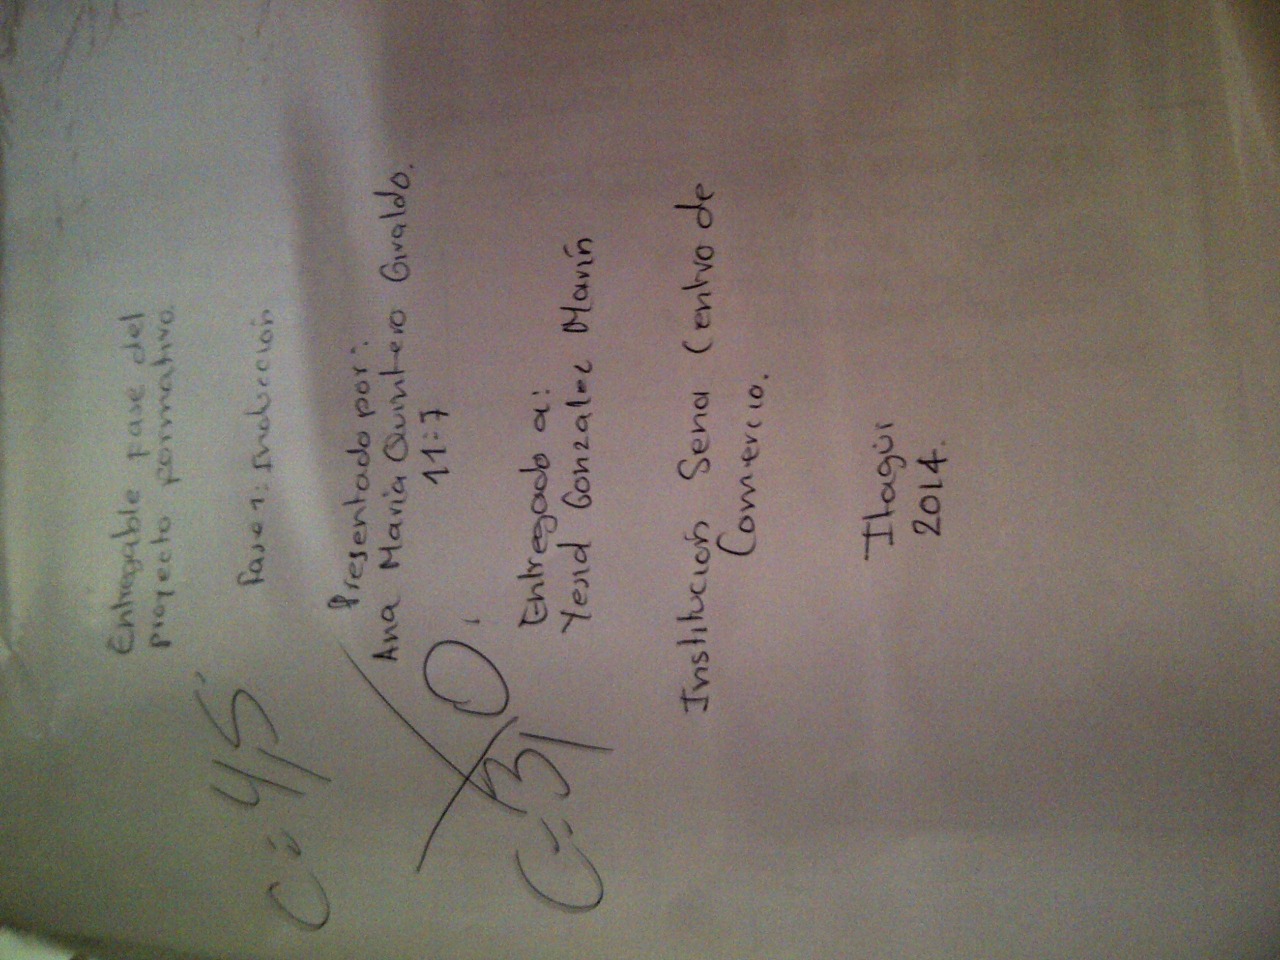 Entregable fase del
proyecto formativo.
Fase 1: Inducción
Presentado por:
Ana María Quintero Giraldo.
11:7
Entregado a:
Yesid Gonzalez Marín
Institución Sena Centro de
Comercio.
Itagüi
2014.
C: 4,5
C: 3,0